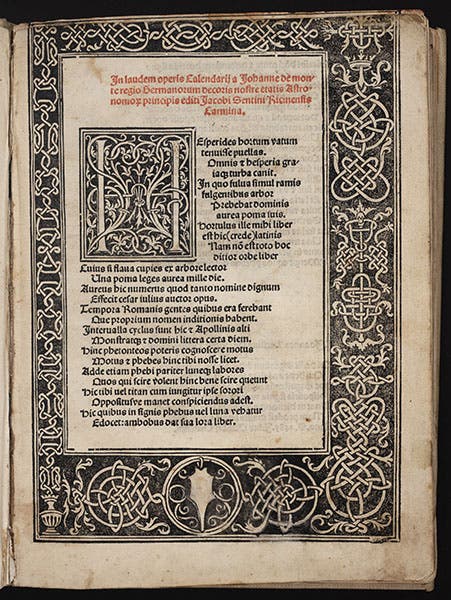 In laudem operis Calendarij a Johanne de mon-
te regio Germanorum decoris nostre etatis Astro-
nomoꝝ principis editi Jacobi Sentini Ricinensis
Carmina.
HEsperides hortum vatum
tenuisse puellas.
Omnis ⁊ hesperia gra-
iaqꝫ turba canit.
In quo fuluis simul ramis
fulgentibus arbor
Prebebat dominis
aurea poma suis.
Hortulus ille mihi liber
est hic (crede) latinis
Nam nō est toto hoc
ditior orbe liber
Cuius si flaua cupies ex arbore lector
Una poma leges aurea mille die.
Aureus hic numerus quod tanto nomine dignum
Effecit cesar iulius auctor opus.
Tempora Romanis gentes quibus era ferebant
Que proprium nomen inditionis habent.
Interuallo cyclus sunt hic ⁊ Apollinis alti
Monstratqꝫ ⁊ domini littera certa diem.
Hinc phetonteos poteris cognoscere motus
Motus ⁊ phebes hinc tibi nosse licet.
Adde etiam phebi pariter luneqꝫ labores
Quos qui scire volent hinc bene scire queunt
Hic tibi vel titan cum iungitur ipse sorori
Oppositusve manet conspiciendus adest.
Hic quibus in signis phebus uel luna vehatur
Edocet: ambobus dat sua lora liber.